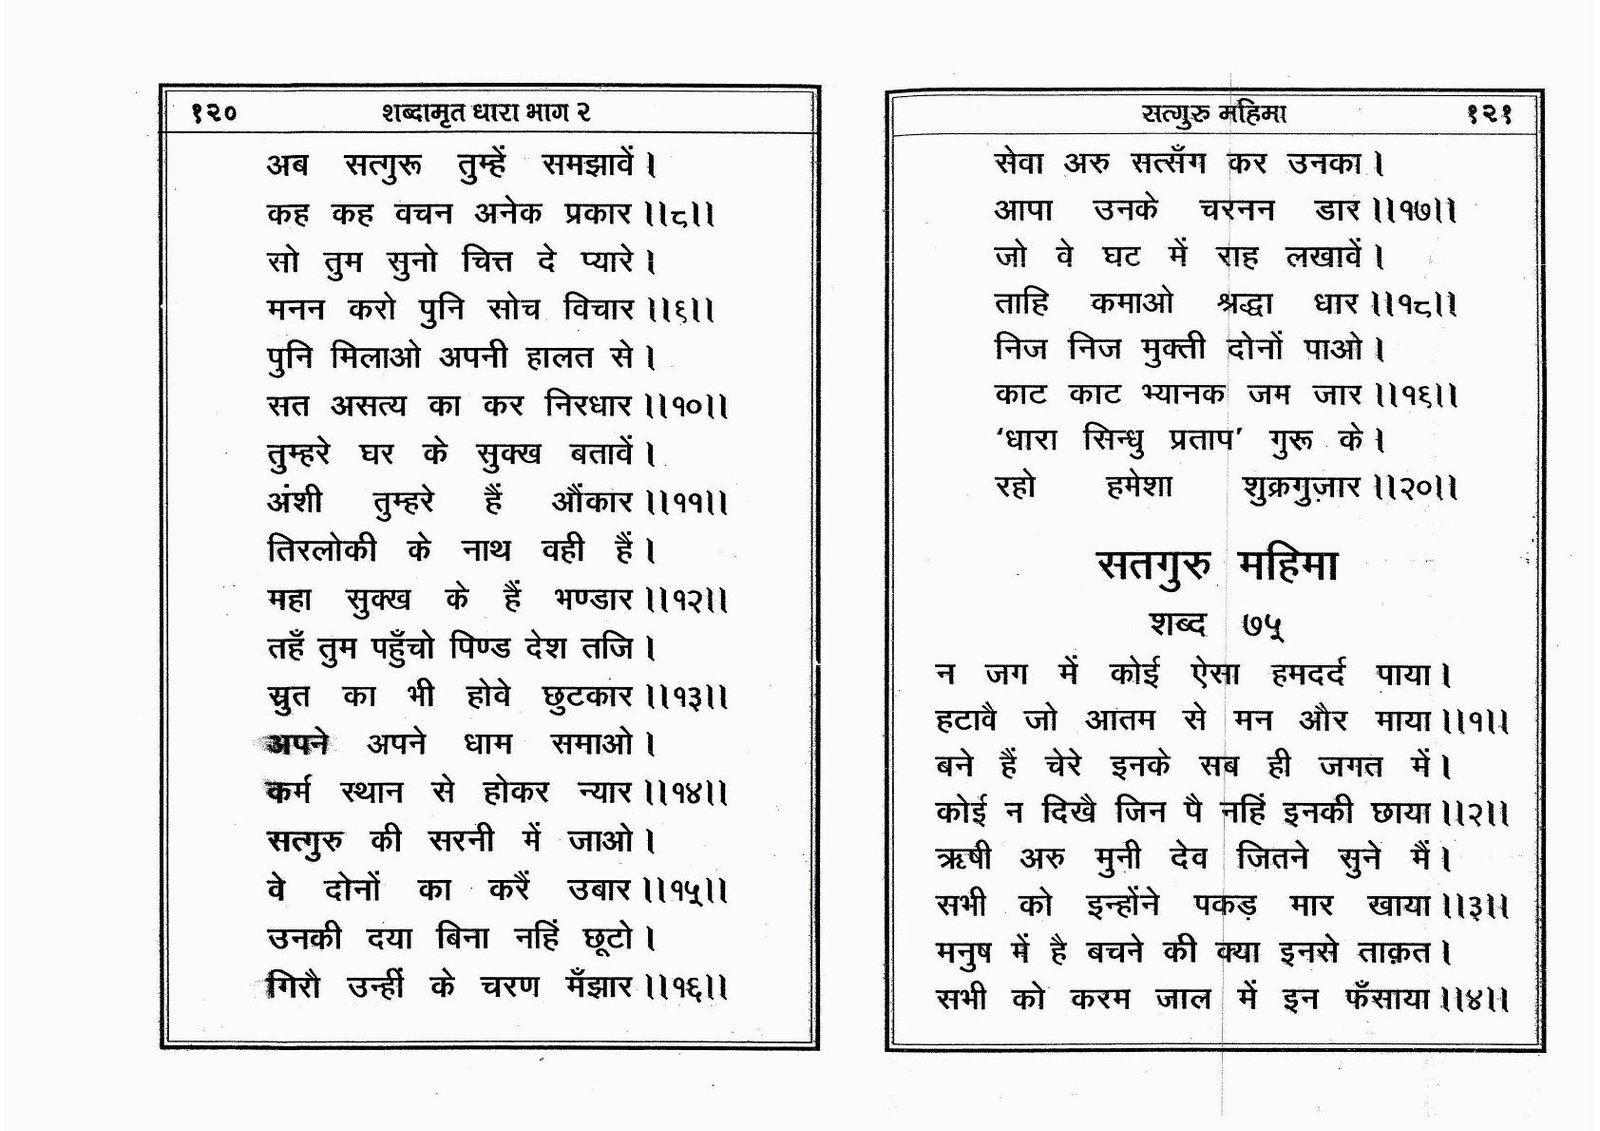 १२० शब्दामृत धारा भाग २
अब सत्गुरू तुम्हें समझावें ।
कह कह वचन अनेक प्रकार ।।८।।
सो तुम सुनो चित्त दे प्यारे ।
मनन करो पुनि सोच विचार ।।९।।
पुनि मिलाओ अपनी हालत से ।
सत असत्य का कर निरधार ।।१०।।
तुम्हरे घर के सुक्ख बतावें ।
अंशी तुम्हरे हैं औंकार ।।११।।
तिरलोकी के नाथ वही हैं ।
महा सुक्ख के हैं भण्डार ।।१२।।
तहँ तुम पहुँचो पिण्ड देश तजि ।
स्रुत का भी होवे छुटकार ।।१३।।
अपने अपने धाम समाओ ।
कर्म स्थान से होकर न्यार ।।१४।।
सत्गुरु की सरनी में जाओ ।
वे दोनों का करैं उबार ।।१५।।
उनकी दया बिना नहिं छूटो ।
गिरौ उन्हीं के चरण मँझार ।।१६।।
सत्गुरु महिमा १२१
सेवा अरु सत्सँग कर उनका ।
आपा उनके चरनन डार ।।१७।।
जो वे घट में राह लखावें ।
ताहि कमाओ श्रद्धा धार ।।१८।।
निज निज मुक्ती दोनों पाओ ।
काट काट भ्यानक जम जार ।।१९।।
‘धारा सिन्धु प्रताप’ गुरू के ।
रहो हमेशा शुक्रगुज़ार ।।२०।।
सतगुरु महिमा
शब्द ७५
न जग में कोई ऐसा हमदर्द पाया ।
हटावै जो आतम से मन और माया ।।१।।
बने हैं चेरे इनके सब ही जगत में ।
कोई न दिखै जिन पै नहिं इनकी छाया ।।२।।
ऋषी अरु मुनी देव जितने सुने मैं ।
सभी को इन्होंने पकड़ मार खाया ।।३।।
मनुष में है बचने की क्या इनसे ताक़त ।
सभी को करम जाल में इन फँसाया ।।४।।